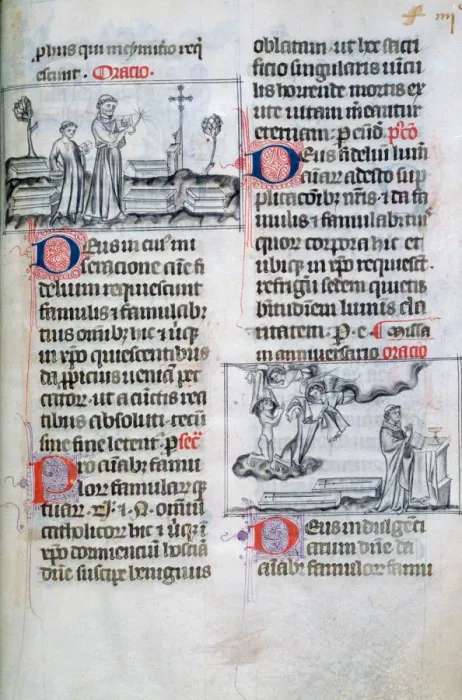 phus qui in cymiterio req
escunt . Oracio .
Deus in cuius mi
seracione anime fi
delium requiescunt
famulis ⁊ famulabus
tuis omnibus hic ⁊ ubique
in xpo quiescentibus
da propicius veniam pec
catorum . ut a cunctis rea
tibus absoluti . tecum
sine fine letentur . p secr
Pro animabus famu
lorum famularumque
tuarum . ⁊ omnium
catholicorum hic ⁊ ubique in
xpo dormiencium hostiam
domine suscipe benignus
oblatam . ut hoc sacri
ficio singularis vincu
lis horrende mortis ex
ute vitam mereantur
eternam . p eund . pco
Deus fidelium lumen
animarum adesto sup
plicacionibus nostris ⁊ da fa
mulis ⁊ famulabus tuis
quorum corpora hic et
ubique in xpo requiescunt .
refrigerii sedem quietis
beatitudinem luminis cla
ritatem . P . e . Missa
in anniversario oracio
Deus indulgenci
arum domine da
animabus famulorum famu